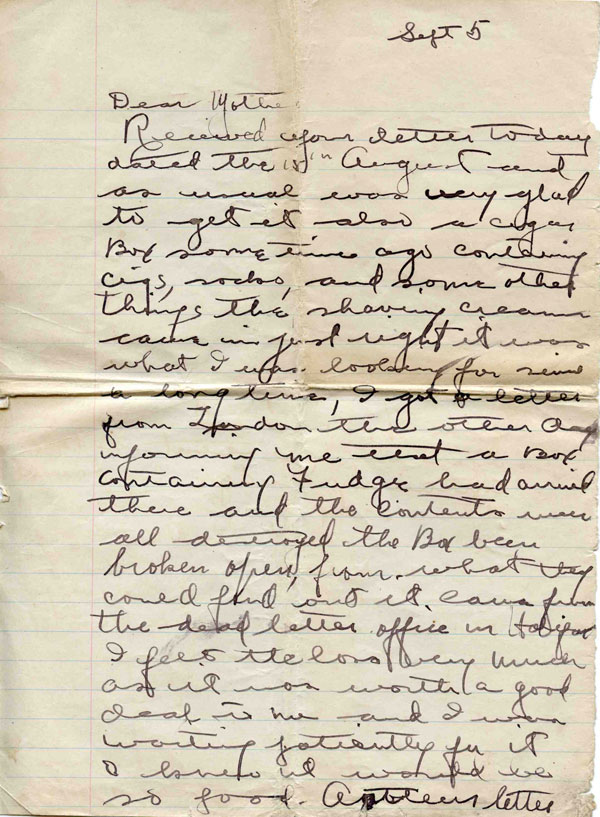 Sept 5
Dear Mother
Received your letter today
dated the 15th August and
as usual was very glad
to get it also a cigar
Box sometime ago containing
cigs, socks, and some other
things the shaving cream
came in just right it was
what I was looking for since
a long time, I got a letter
from London the other day
informing me that a Box
containing Fudge had arrived
there and the contents were
all destroyed the Box been
broken open, from what they
could find out it came from
the dead letter office in Halifax
I felt the loss very much
as it was worth a good
deal to me and I was
waiting patiently for it
I knew it would be
so good. letter